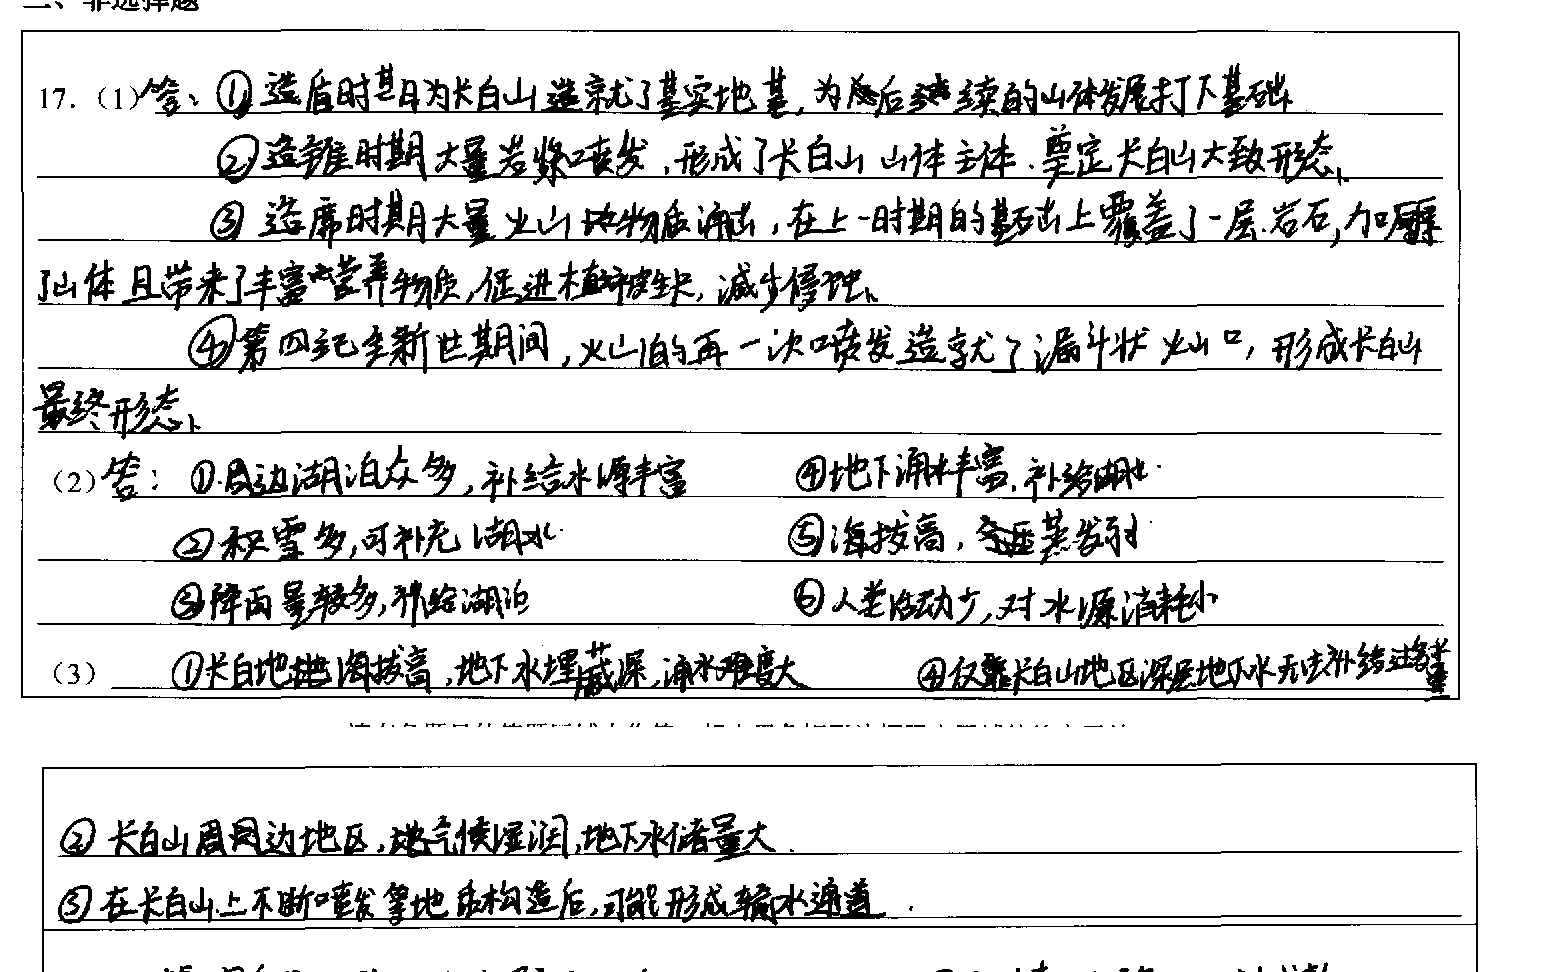 二、非选择题
17.（1）答：①造盾时期为长白山造就了基实地基，为后续的山体发展打下基础
②造锥时期大量岩浆喷发，形成了长白山山体主体．奠定长白山大致形态、
③造席时期大量火山物质涌出，在上一时期的基础上覆盖了一层岩石，加厚
了山体且带来了丰富营养物质，促进植被生长，减少侵蚀、
④第四纪全新世期间，火山的再一次喷发造就了漏斗状火山口，形成长白山
最终形态、
（2）答：①周边湖泊众多，补给水源丰富 ④地下涌水丰富，补给湖水
②积雪多，可补充湖水 ⑤海拔高，蒸发弱
③降雨量较多，补给湖泊 ⑥人类活动少，对水源消耗小
（3）①长白地 海拔高，地下水埋藏深，涌水难度大 ④仅靠长白山地区深层地下水无法补给过多水量
②长白山周边地区，气候湿润，地下水储量大
③在长白山上不断喷发等地质构造后，可能形成输水通道．